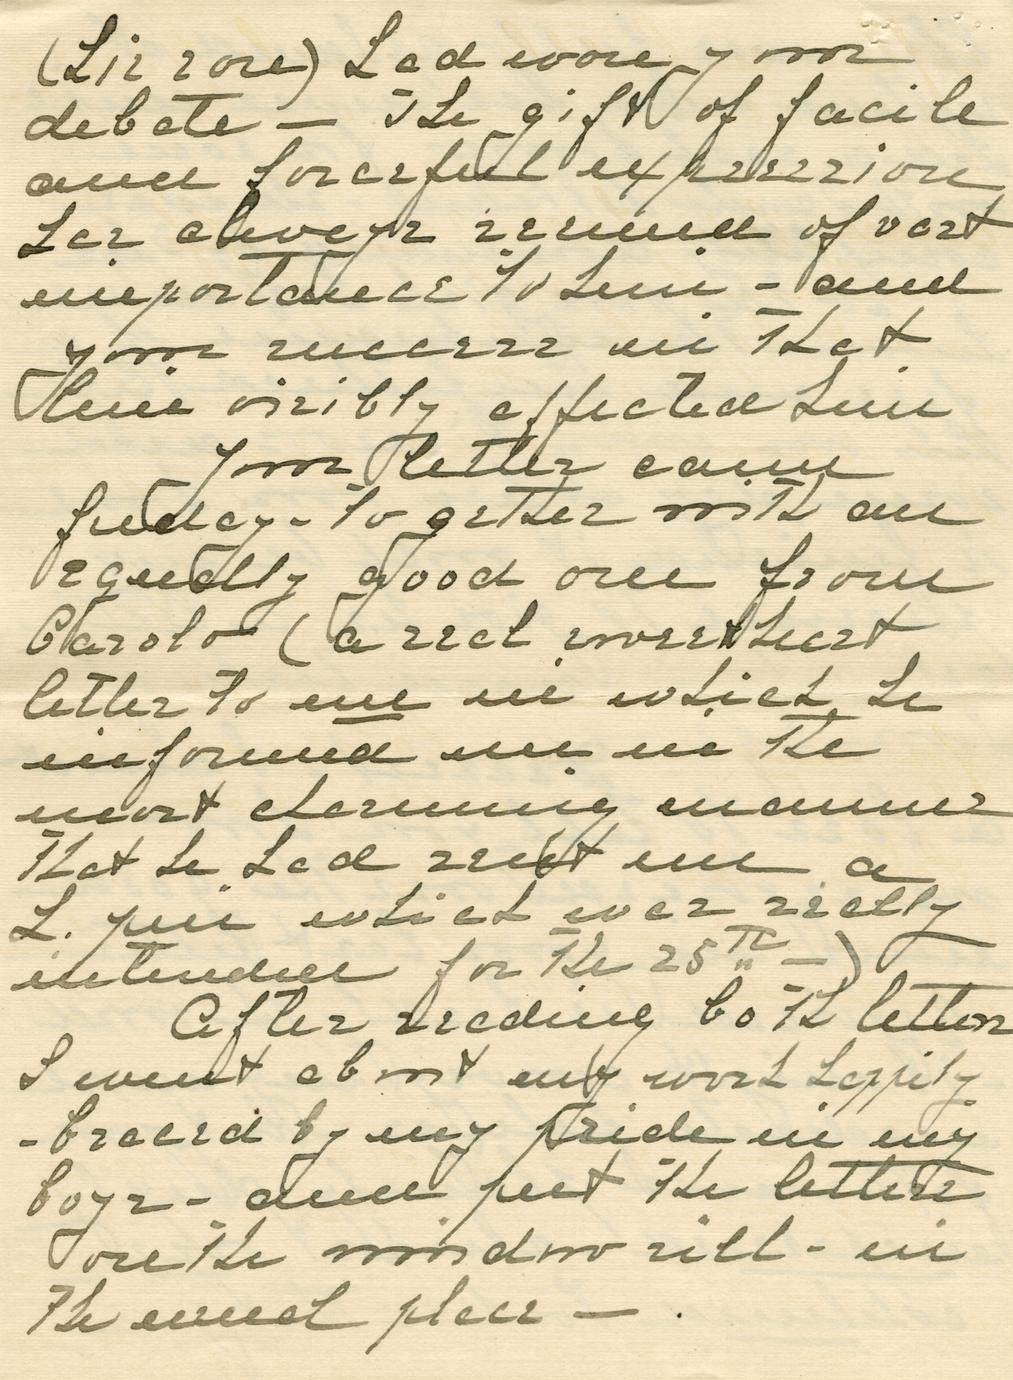 (his son) had won your
debate — The gift of facile
and forceful expression
has always seemed of vast
importance to him - and
your success in that
line visibly affected him
Your letter came
Friday - together with an
equally good one from
Carolo (a real sweetheart
letter to me in which he
informed me in the
most charming manner
that he had sent me a
h. pin which was really
intended for the 25th —)
After reading both letters
I went about my work happily
- braced by my pride in my
boys - and put the letters
on the window sill - in
the usual place — .